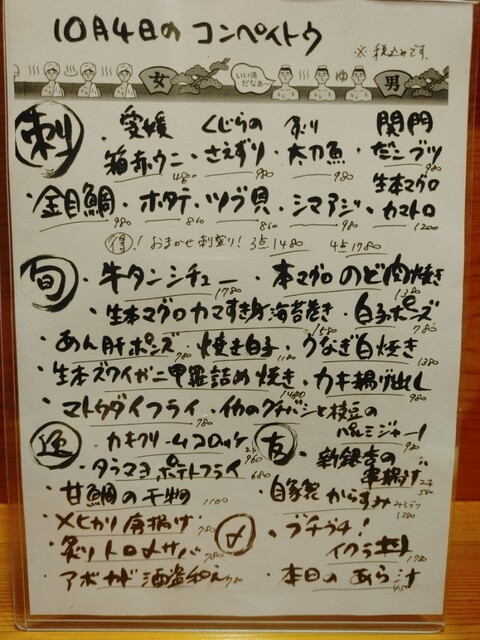 10月4日の コンペイトウ
※税込みです。
女
いい湯だなぁ~
ゆ
男
刺
・愛媛 箱赤ウニ 480
くじらの さえずり 980
炙り 太刀魚 980
関門 だこブツ 900
・金目鯛 980
・ホタテ 860
・ツブ貝 860
・シマアジ 980
生本マグロ カマトロ 1200
得! おまかせ刺盛り! 3点1480 4点1780
旬
・牛タンシチュー 1780
・本マグロのど肉焼き 1380
・生本マグロカマすき身海苔巻き 1580
・白子ポンズ 780
・あん肝ポンズ 780
・焼き白子 1180
・うなぎ白焼き 1380
・生本ズワイガニ甲羅詰め焼き 1480
・カキ揚げ出し 980
・マトウダイフライ 780
・イカのクチバシと枝豆の ペペルミジャーノ
・カキクリームコロッケ 2ケ 960
友
・新銀杏の 串揚げ 2本 580
・タラマヨポテトフライ 680
・甘鯛の干物 1100
・自家製 からすみ 1380
・メヒカリ唐揚げ 780
〆
・プチプチ! イクラ丼 1780
・炙りトロメサバ 780
・アボカド酒盗和え 780
・本日の あら汁 450